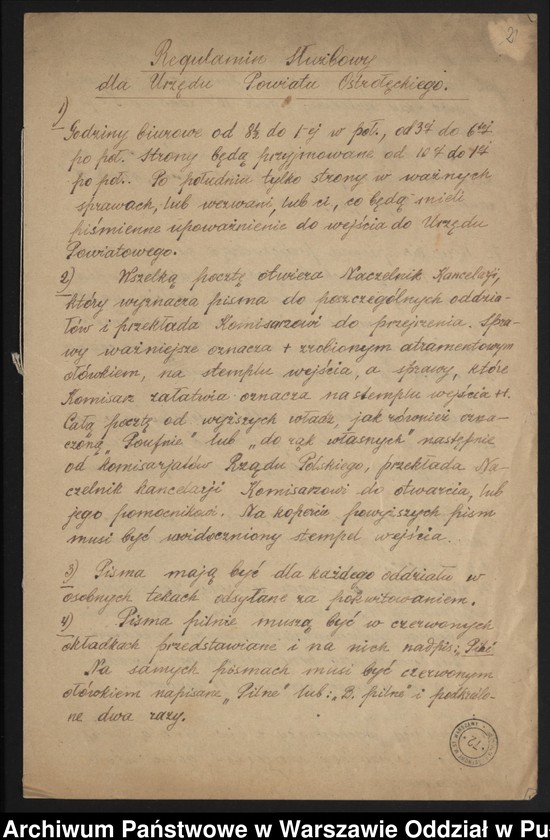 2
Regulamin Służbowy
dla Urzędu Powiatu Ostrołęckiego.
1) Godziny biurowe od 8½ do 1-ej w poł., od 3ej do 6tej
po poł. Strony będą przyjmowane od 10ej do 1ej
po poł.. Po południu tylko strony w ważnych
sprawach, lub wezwani, lub ci, co będą mieli
piśmienne upoważnienie do wejścia do Urzędu
Powiatowego.
2) Wszelką pocztę otwiera Naczelnik Kancelarji,
który wyznacza pisma do poszczególnych oddzia-
łów i przekłada Komisarzowi do przejrzenia. Spra-
wy ważniejsze oznacza + zrobionym atramentowym
ołówkiem, na stemplu wejścia, a sprawy, które
Komisarz załatwia oznacza na stemplu wejścia ++.
Całą pocztę od wyższych władz, jak również ozna-
czoną „Poufnie" lub „do rąk własnych" następnie
od komisarjatów Rządu Polskiego, przekłada Na-
czelnik kancelarji Komisarzowi do otwarcia, lub
jego pomocnikowi. Na kopercie powyższych pism
musi być uwidoczniony stempel wejścia.
3) Pisma mają być dla każdego oddziału w
osobnych tekach odsyłane za pokwitowaniem.
4) Pisma pilnie muszą być w czerwonych
okładkach przedstawiane i na nich nadpis:
Na samych pismach musi być czerwonym
ołówkiem napisane „Pilne" lub: „B. pilne" i podkreślo-
ne dwa razy.
12
Archiwum Państwowe w Warszawie Oddział w Pu